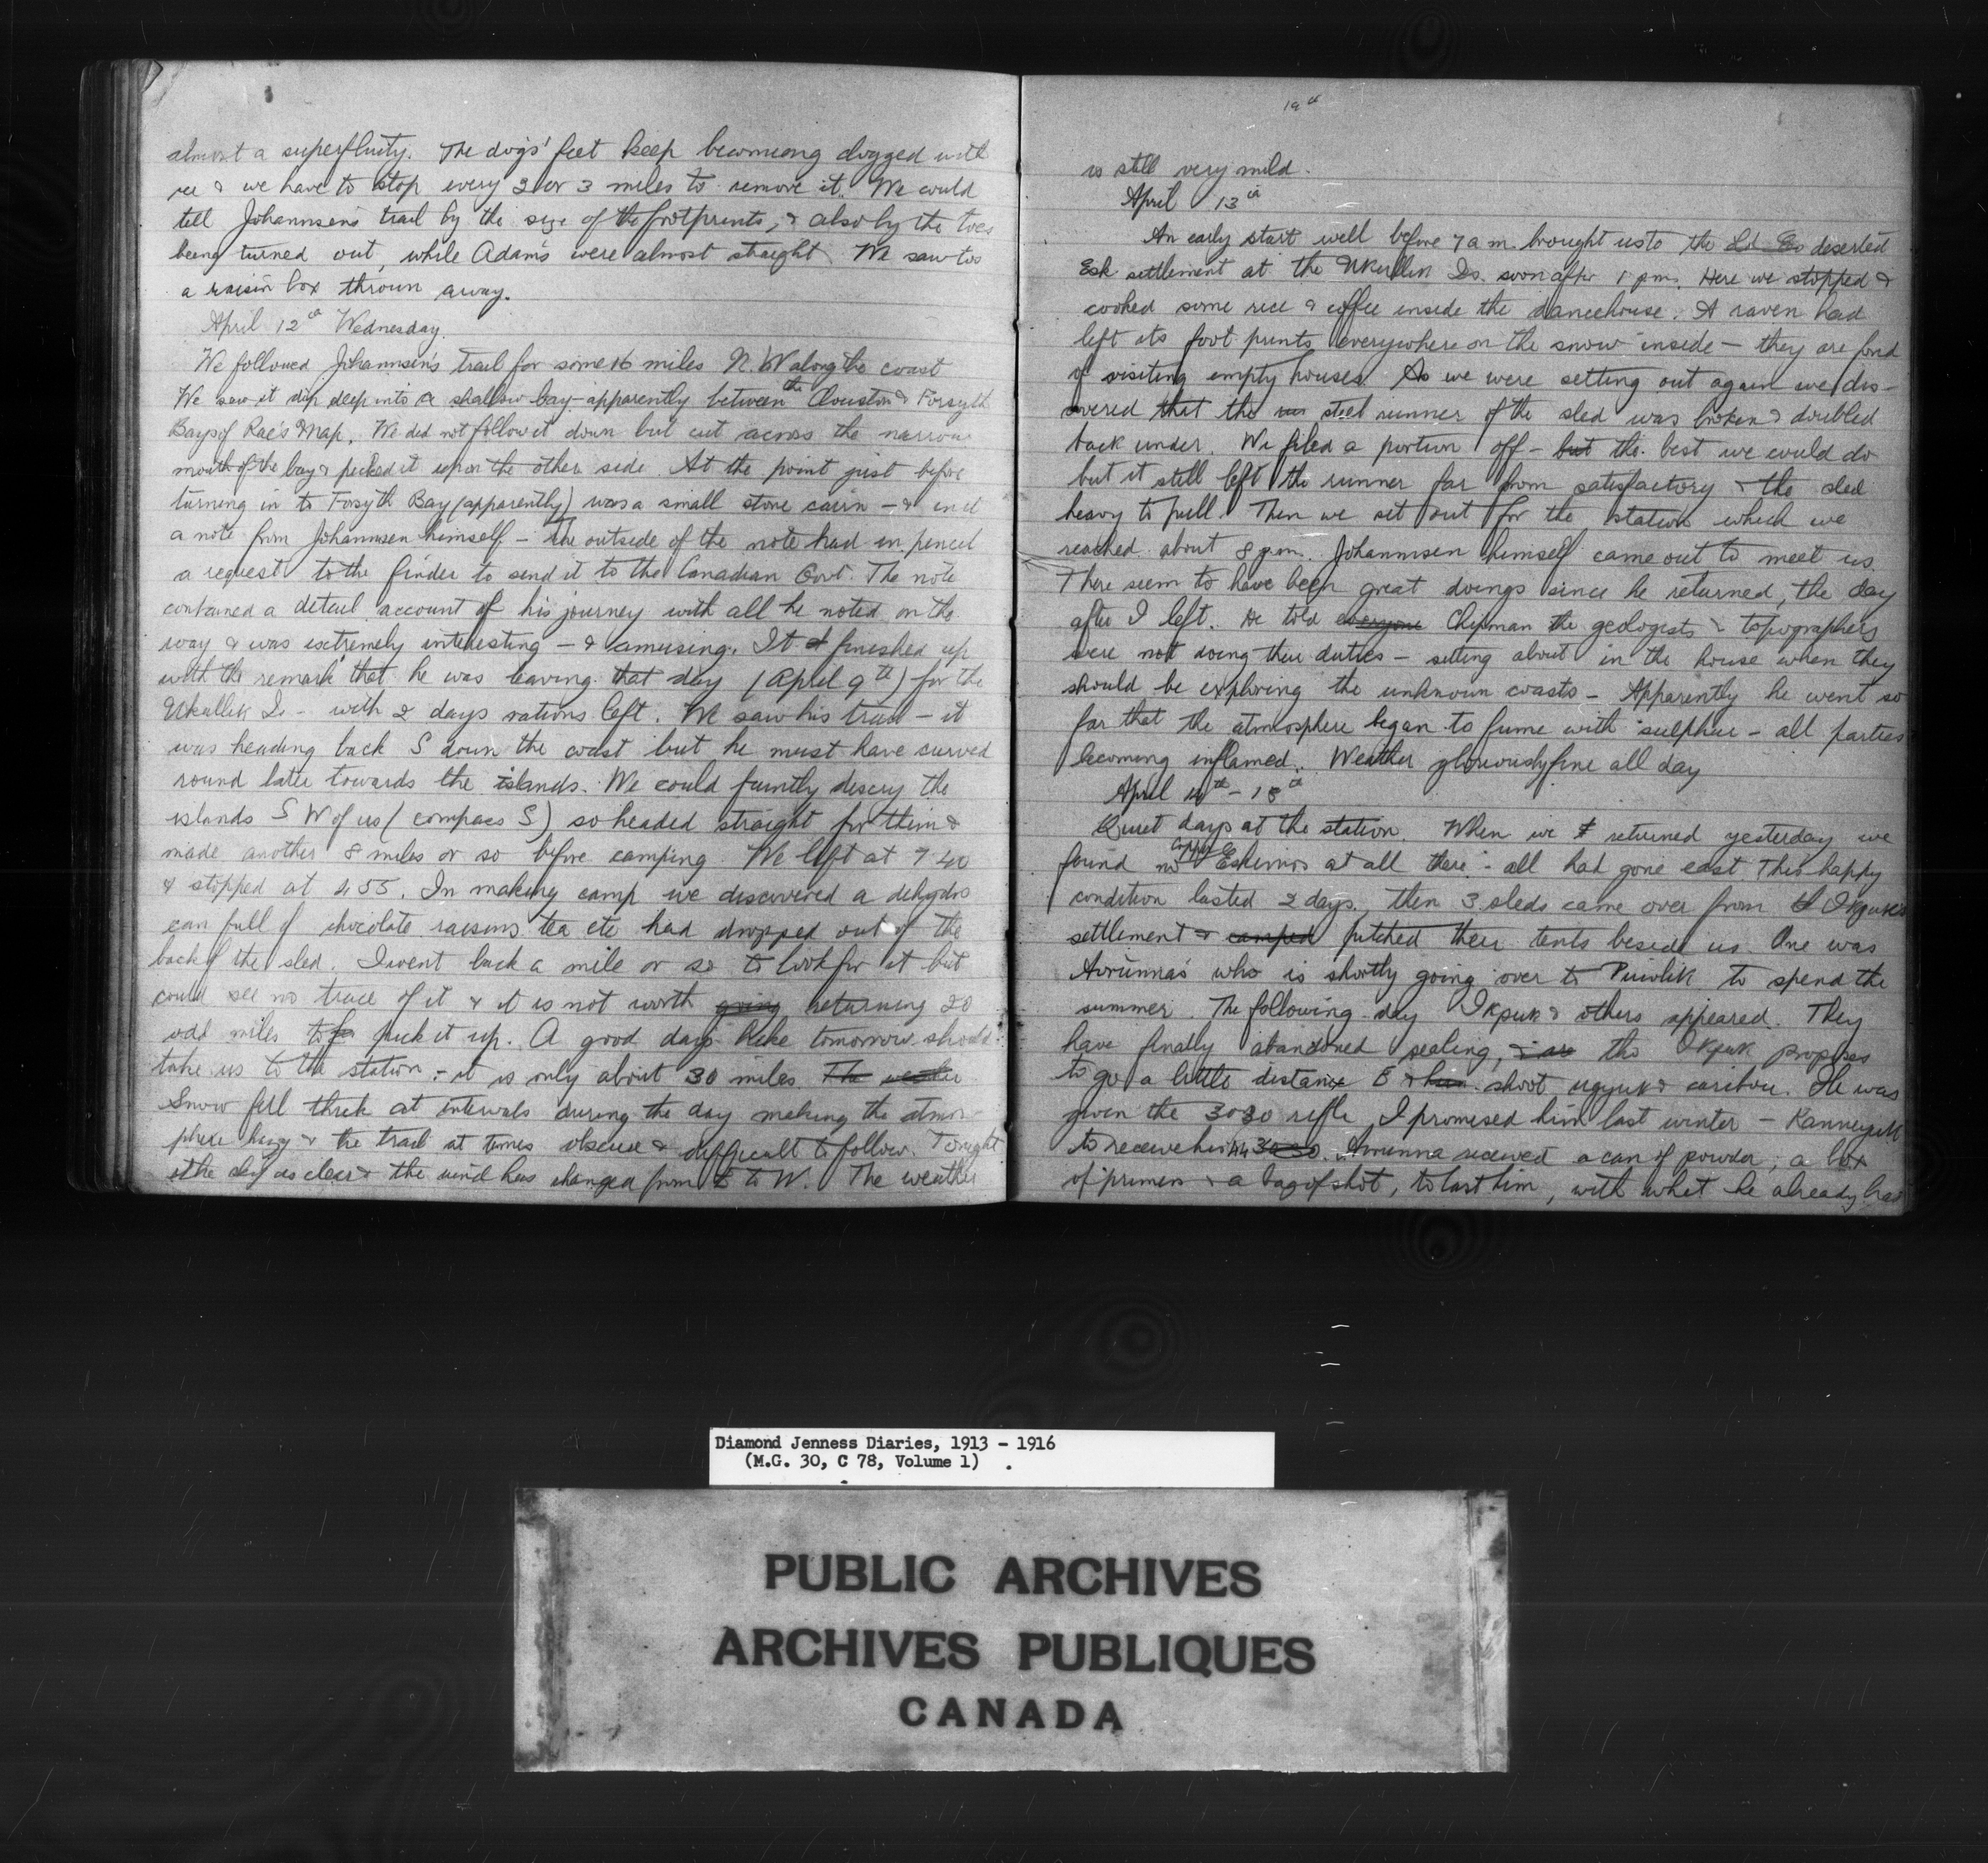 almost a superfluity. The dogs' feet keep becoming clogged with
ice & we have to stop every 2 or 3 miles to remove it. We could
tell Johannsen's trail by the size of the footprints, & also by the toes
being turned out, while Adam's were almost straight. We saw too
a raisin box thrown away.
April 12th Wednesday.
We followed Johannsen's trail for some 16 miles N.W along the coast
We saw it dip deep into a shallow bay - apparently between the Clouston & Forsyth
Bays of Rae's Map. We did not follow it down but cut across the narrow
mouth of the bay & picked it up on the other side. At the point just before
turning in to Forsyth Bay (apparently) was a small stone cairn - & in it
a note from Johannsen himself - The outside of the note had in pencil
a request to the finder to send it to the Canadian Govt. The note
contained a detail account of his journey with all he noted on the
way & was extremely interesting - & amusing. It finished up
with the remark that he was leaving that day (April 9th) for the
Ukullik Is - with 2 days rations left. We saw his trail - it
was heading back S down the coast but he must have curved
round later towards the islands. We could faintly descry the
islands S W of us (compass S) so headed straight for them &
made another 8 miles or so before camping. We left at 7 40
& stopped at 4 55. In making camp we discovered a dehydro
can full of chocolate raisins tea etc had dropped out of the
back of the sled. I went back a mile or so to look for it but
could see no trace of it & it is not worth going returning 20
odd miles to pick it up. A good day's hike tomorrow should
take us to the station - it is only about 30 miles. The weather
Snow fell thick at intervals during the day making the atmos-
phere hazy & the trail at times obscure & difficult to follow. Tonight
the sky is clear & the wind has changed from E to W. The weather
19th
is still very mild.
April 13th
An early start well before 7 a m. brought us to the deserted
Esk settlement at the Ukullik Is. soon after 1 p m. Here we stopped &
cooked some rice & coffee inside the dancehouse. A raven had
left its foot prints everywhere on the snow inside - they are fond
of visiting empty houses. As we were setting out again we dis-
covered that the steel runner of the sled was broken & doubled
back under. We filed a portion off - but the best we could do
but it still left the runner far from satisfactory & the sled
heavy to pull. Then we set out for the station which we
reached about 8 p.m. Johannsen himself came out to meet us.
There seem to have been great doings since he returned, the day
after I left. He told everyone Chipman the geologists & topographers
were not doing their duties - sitting about in the house when they
should be exploring the unknown coasts - Apparently he went so
far that the atmosphere began to fume with sulphur - all parties
becoming inflamed. Weather gloriously fine all day
April 14th - 18th
Quiet days at the station. When we returned yesterday we
found no Copper Eskimos at all there - all had gone east This happy
condition lasted 2 days, then 3 sleds came over from Ikpuk's
settlement & camped pitched their tents beside us. One was
Avrunna's who is shortly going over to Puivlik to spend the
summer. The following day Ikpuk & others appeared. They
have finally abandoned sealing, tho Ikpuk proposes
to go a little distance E & shoot ugyuk & caribou. He was
given the 3030 rifle I promised him last winter - Kanneyuk
to receive his 44 3030. Avrunna received a can of powder, a box
of primers & a bag of shot, to last him, with what he already has
Diamond Jenness Diaries, 1913 - 1916
(M.G. 30, C 78, Volume 1)
PUBLIC ARCHIVES
ARCHIVES PUBLIQUES
CANADA